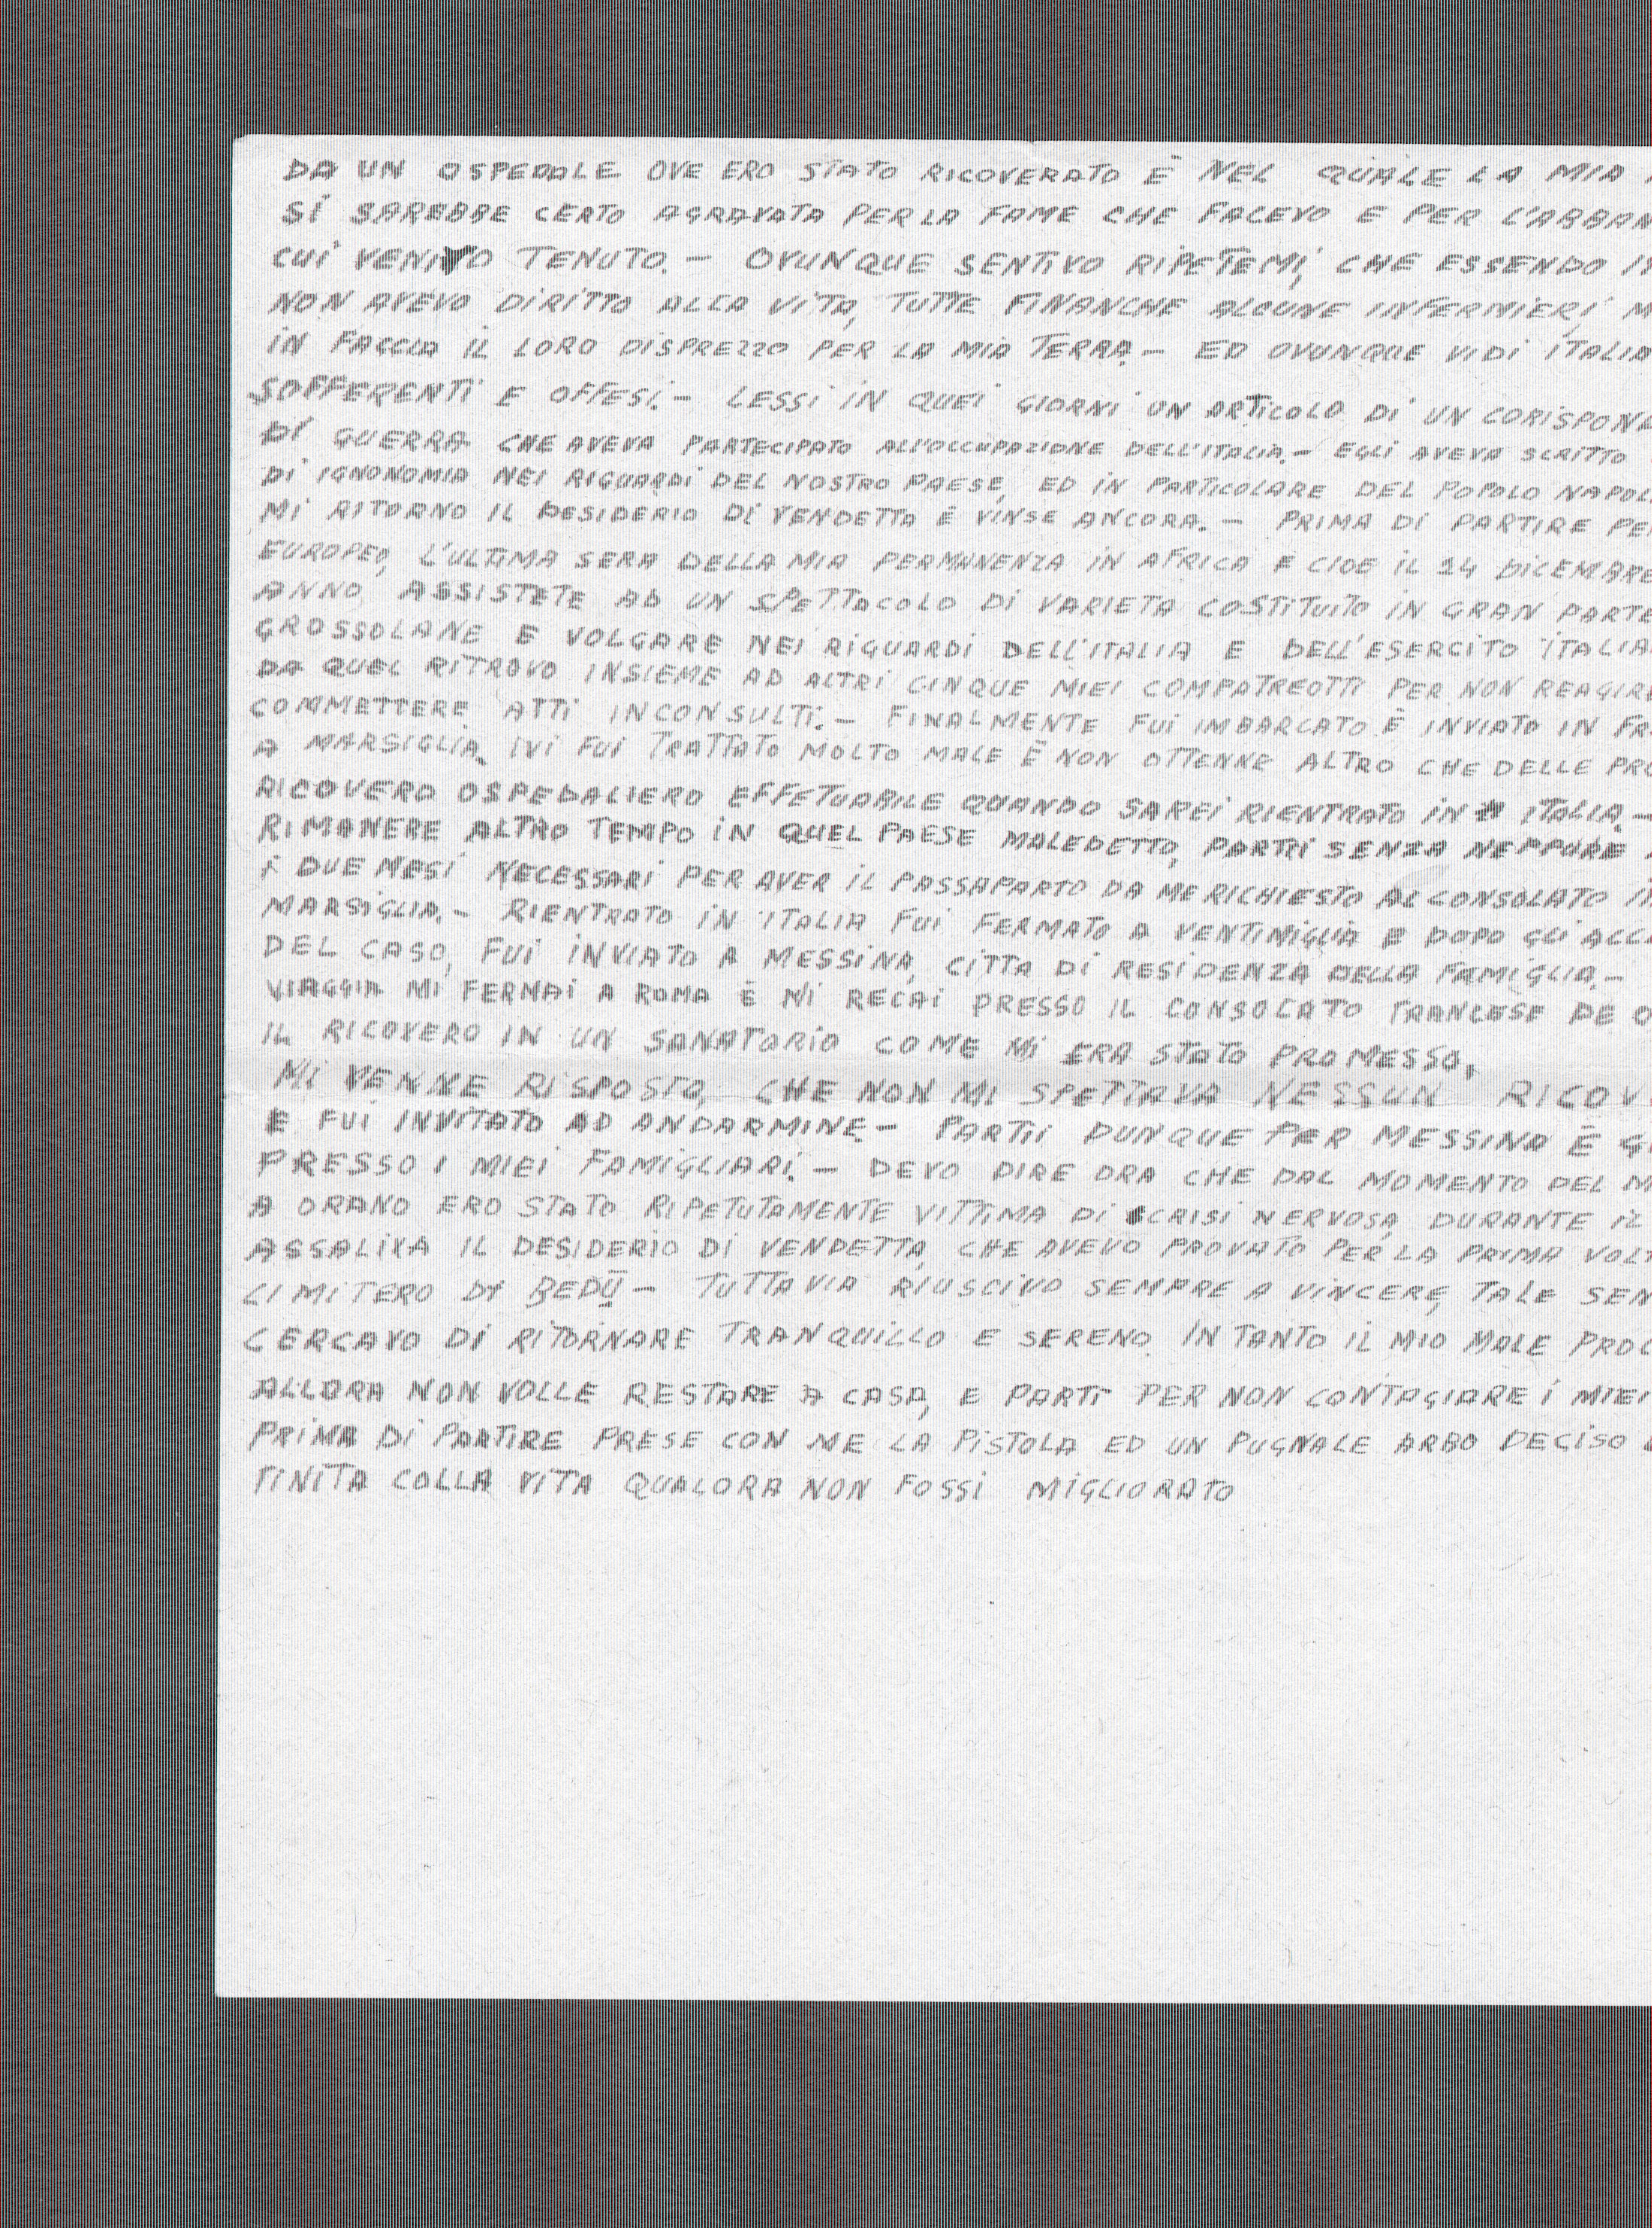 DA UN OSPEDALE OVE ERO STATO RICOVERATO È NEL QUALE LA MIA
SI SAREBBE CERTO AGRAVATA PER LA FAME CHE FACEVO E PER L'ABBAN
CUI VENIVO TENUTO. - OVUNQUE SENTIVO RIPETEMI, CHE ESSENDO
NON AVEVO DIRITTO ALLA VITA, TUTTE FINANCHE ALCUNE INFERMIERI, M
IN FACCIA IL LORO DISPREZZO PER LA MIA TERRA. - ED OVUNQUE VIDI ITALIA
SOFFERENTI E OFFESI. - LESSI IN QUEI GIORNI UN ARTICOLO DI UN CORISPON
DI GUERRA CHE AVEVA PARTECIPATO ALL'OCCUPAZIONE DELL'ITALIA. - EGLI AVEVA SCRITTO
DI IGNONOMIA NEI RIGUARDI DEL NOSTRO PAESE, ED IN PARTICOLARE DEL POPOLO NAPOL
MI RITORNO IL DESIDERIO DI VENDETTA E VINSE ANCORA. - PRIMA DI PARTIRE PE
EUROPEO, L'ULTIMA SERA DELLA MIA PERMANENZA IN AFRICA E CIOE IL 14 DICEMBRE
ANNO ASSISTETE AD UN SPETTACOLO DI VARIETA COSTITUITO IN GRAN PARTE
GROSSOLANE E VOLGARE NEI RIGUARDI DELL'ITALIA E DELL'ESERCITO ITALIA
DA QUEL RITROVO INSIEME AD ALTRI CINQUE MIEI COMPATREOTTI PER NON REAGIRE
COMMETTERE ATTI INCONSULTI. - FINALMENTE FUI IMBARCATO È INVIATO IN FR
A MARSIGLIA. IVI FUI TRATTATO MOLTO MALE È NON OTTENNE ALTRO CHE DELLE PRO
RICOVERO OSPEDALIERO EFFETUABILE QUANDO SAREI RIENTRATO IN ITALIA. -
RIMANERE ALTRO TEMPO IN QUEL PAESE MALEDETTO, PARTII SENZA NEPPURE
I DUE MESI NECESSARI PER AVER IL PASSAPARTO DA ME RICHIESTO AL CONSOLATO IT
MARSIGLIA. - RIENTRATO IN ITALIA FUI FERMATO A VENTIMIGLIA E DOPO GLI ACC
DEL CASO, FUI INVIATO A MESSINA, CITTA DI RESIDENZA DELLA FAMIGLIA. -
VIAGGIA MI FERMAI A ROMA È MI RECAI PRESSO IL CONSOLATO FRANCESE DE O
IL RICOVERO IN UN SANATORIO COME MI ERA STATO PROMESSO,
MI VENNE RISPOSTO, CHE NON MI SPETTAVA NESSUN RICOV
E FUI INVITATO AD ANDARMINE - PARTII DUNQUE PER MESSINA È G
PRESSO I MIEI FAMIGLIARI. - DEVO DIRE ORA CHE DAL MOMENTO DEL M
A ORANO ERO STATO RIPETUTAMENTE VITTIMA DI CRISI NERVOSA, DURANTE IL
ASSALIVA IL DESIDERIO DI VENDETTA, CHE AVEVO PROVATO PER LA PRIMA VOLT
CIMITERO DI BEDÙ - TUTTAVIA RIUSCIVO SEMPRE A VINCERE, TALE SEN
CERCAVO DI RITORNARE TRANQUILLO E SERENO. IN TANTO IL MIO MALE PROC
ALLORA NON VOLLE RESTARE A CASA, E PARTI PER NON CONTAGIARE I MIEI
PRIMA DI PARTIRE PRESE CON ME LA PISTOLA ED UN PUGNALE ARBO DECISO
FINITA COLLA VITA QUALORA NON FOSSI MIGLIORATO